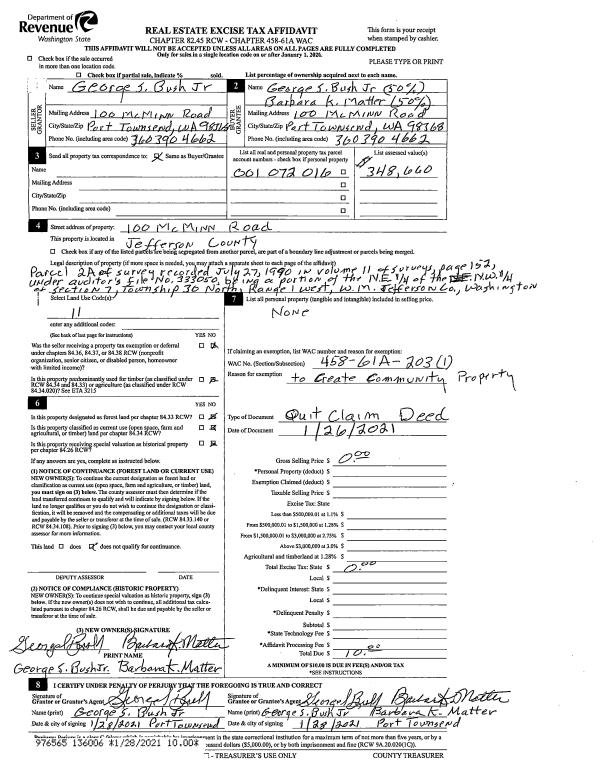 Department of
Revenue
Washington State
REAL ESTATE EXCISE TAX AFFIDAVIT
CHAPTER 82.45 RCW - CHAPTER 458-61A WAC
THIS AFFIDAVIT WILL NOT BE ACCEPTED UNLESS ALL AREAS ON ALL PAGES ARE FULLY COMPLETED
Only for sales in a single location code on or after January 1, 2020.
This form is your receipt
when stamped by cashier.
PLEASE TYPE OR PRINT
Check box if the sale occurred
in more than one location code.
Check box if partial sale, indicate % sold.
List percentage of ownership acquired next to each name.
SELLER
GRANTOR
Name George S. Bush Jr
Mailing Address 100 McMinn Road
City/State/Zip Port Townsend, WA 98368
Phone No. (including area code) 360 390 4662
2
BUYER
GRANTEE
Name George S. Bush Jr (50%)
Barbara K. Matter (50%)
Mailing Address 100 McMinn Road
City/State/Zip Port Townsend, WA 98368
Phone No. (including area code) 360 390 4662
3
Send all property tax correspondence to: Same as Buyer/Grantee
Name
Mailing Address
City/State/Zip
Phone No. (including area code)
List all real and personal property tax parcel
account numbers - check box if personal property
001 072 016
List assessed value(s)
$ 348,660
4
Street address of property: 100 McMinn Road
This property is located in Jefferson County
Check box if any of the listed parcels are being segregated from another parcel, are part of a boundary line adjustment or parcels being merged.
Legal description of property (if more space is needed, you may attach a separate sheet to each page of the affidavit)
Parcel 2A of survey recorded July 27, 1990 in volume 11 of surveys, page 152,
under auditor's file No. 333050, being a portion of the N.E. 1/4 of the N.W. 1/4
of section 7, Township 30 North, Range 1 West, W.M. Jefferson Co., Washington
Select Land Use Code(s):
11
enter any additional codes:
(See back of last page for instructions)
YES NO
Was the seller receiving a property tax exemption or deferral
under chapters 84.36, 84.37, or 84.38 RCW (nonprofit
organization, senior citizen, or disabled person, homeowner
with limited income)?
Is this property predominantly used for timber (as classified under
RCW 84.34 and 84.33) or agriculture (as classified under RCW
84.34.020)? See ETA 3215
6
YES NO
Is this property designated as forest land per chapter 84.33 RCW?
Is this property classified as current use (open space, farm and
agricultural, or timber) land per chapter 84.34 RCW?
Is this property receiving special valuation as historical property
per chapter 84.26 RCW?
If any answers are yes, complete as instructed below.
(1) NOTICE OF CONTINUANCE (FOREST LAND OR CURRENT USE)
NEW OWNER(S): To continue the current designation as forest land or
classification as current use (open space, farm and agriculture, or timber) land,
you must sign on (3) below. The county assessor must then determine if the
land transferred continues to qualify and will indicate by signing below. If the
land no longer qualifies or you do not wish to continue the designation or classi-
fication, it will be removed and the compensating or additional taxes will be due
and payable by the seller or transferor at the time of sale. (RCW 84.33.140 or
RCW 84.34.108). Prior to signing (3) below, you may contact your local county
assessor for more information.
This land does does not qualify for continuance.
DEPUTY ASSESSOR DATE
(2) NOTICE OF COMPLIANCE (HISTORIC PROPERTY)
NEW OWNER(S): To continue special valuation as historic property, sign (3)
below. If the new owner(s) does not wish to continue, all additional tax calcu-
lated pursuant to chapter 84.26 RCW, shall be due and payable by the seller or
transferor at the time of sale.
(3) NEW OWNER(S) SIGNATURE
PRINT NAME
George S. Bush Jr. Barbara K. Matter
7
List all personal property (tangible and intangible) included in selling price.
None
If claiming an exemption, list WAC number and reason for exemption:
WAC No. (Section/Subsection) 458-61A-203(1)
Reason for exemption to Create Community Property
Type of Document Quit Claim Deed
Date of Document 1/26/2021
Gross Selling Price $ 0.00
*Personal Property (deduct) $
Exemption Claimed (deduct) $
Taxable Selling Price $
Excise Tax: State
Less than $500,000.01 at 1.1% $
From $500,000.01 to $1,500,000 at 1.28% $
From $1,500,000.01 to $3,000,000 at 2.75% $
Above $3,000,000 at 3.0% $
Agricultural and timberland at 1.28% $
Total Excise Tax: State $ 0.00
Local $
*Delinquent Interest: State $
Local $
*Delinquent Penalty $
Subtotal $
*State Technology Fee $
*Affidavit Processing Fee $
Total Due $ 10.00
A MINIMUM OF $10.00 IS DUE IN FEE(S) AND/OR TAX
*SEE INSTRUCTIONS
8
I CERTIFY UNDER PENALTY OF PERJURY THAT THE FOREGOING IS TRUE AND CORRECT
Signature of
Grantor or Grantor's Agent
Name (print) George S. Bush Jr
Date & city of signing 1/28/2021 Port Townsend
Signature of
Grantee or Grantee's Agent
Name (print) George S. Bush Jr Barbara K. Matter
Date & city of signing 1/28/2021 Port Townsend
976565 136006 *1/28/2021 10.00*
in the state correctional institution for a maximum term of not more than five years, or by a
ousand dollars ($5,000.00), or by both imprisonment and fine (RCW 9A.20.020(1C)).
- TREASURER'S USE ONLY COUNTY TREASURER